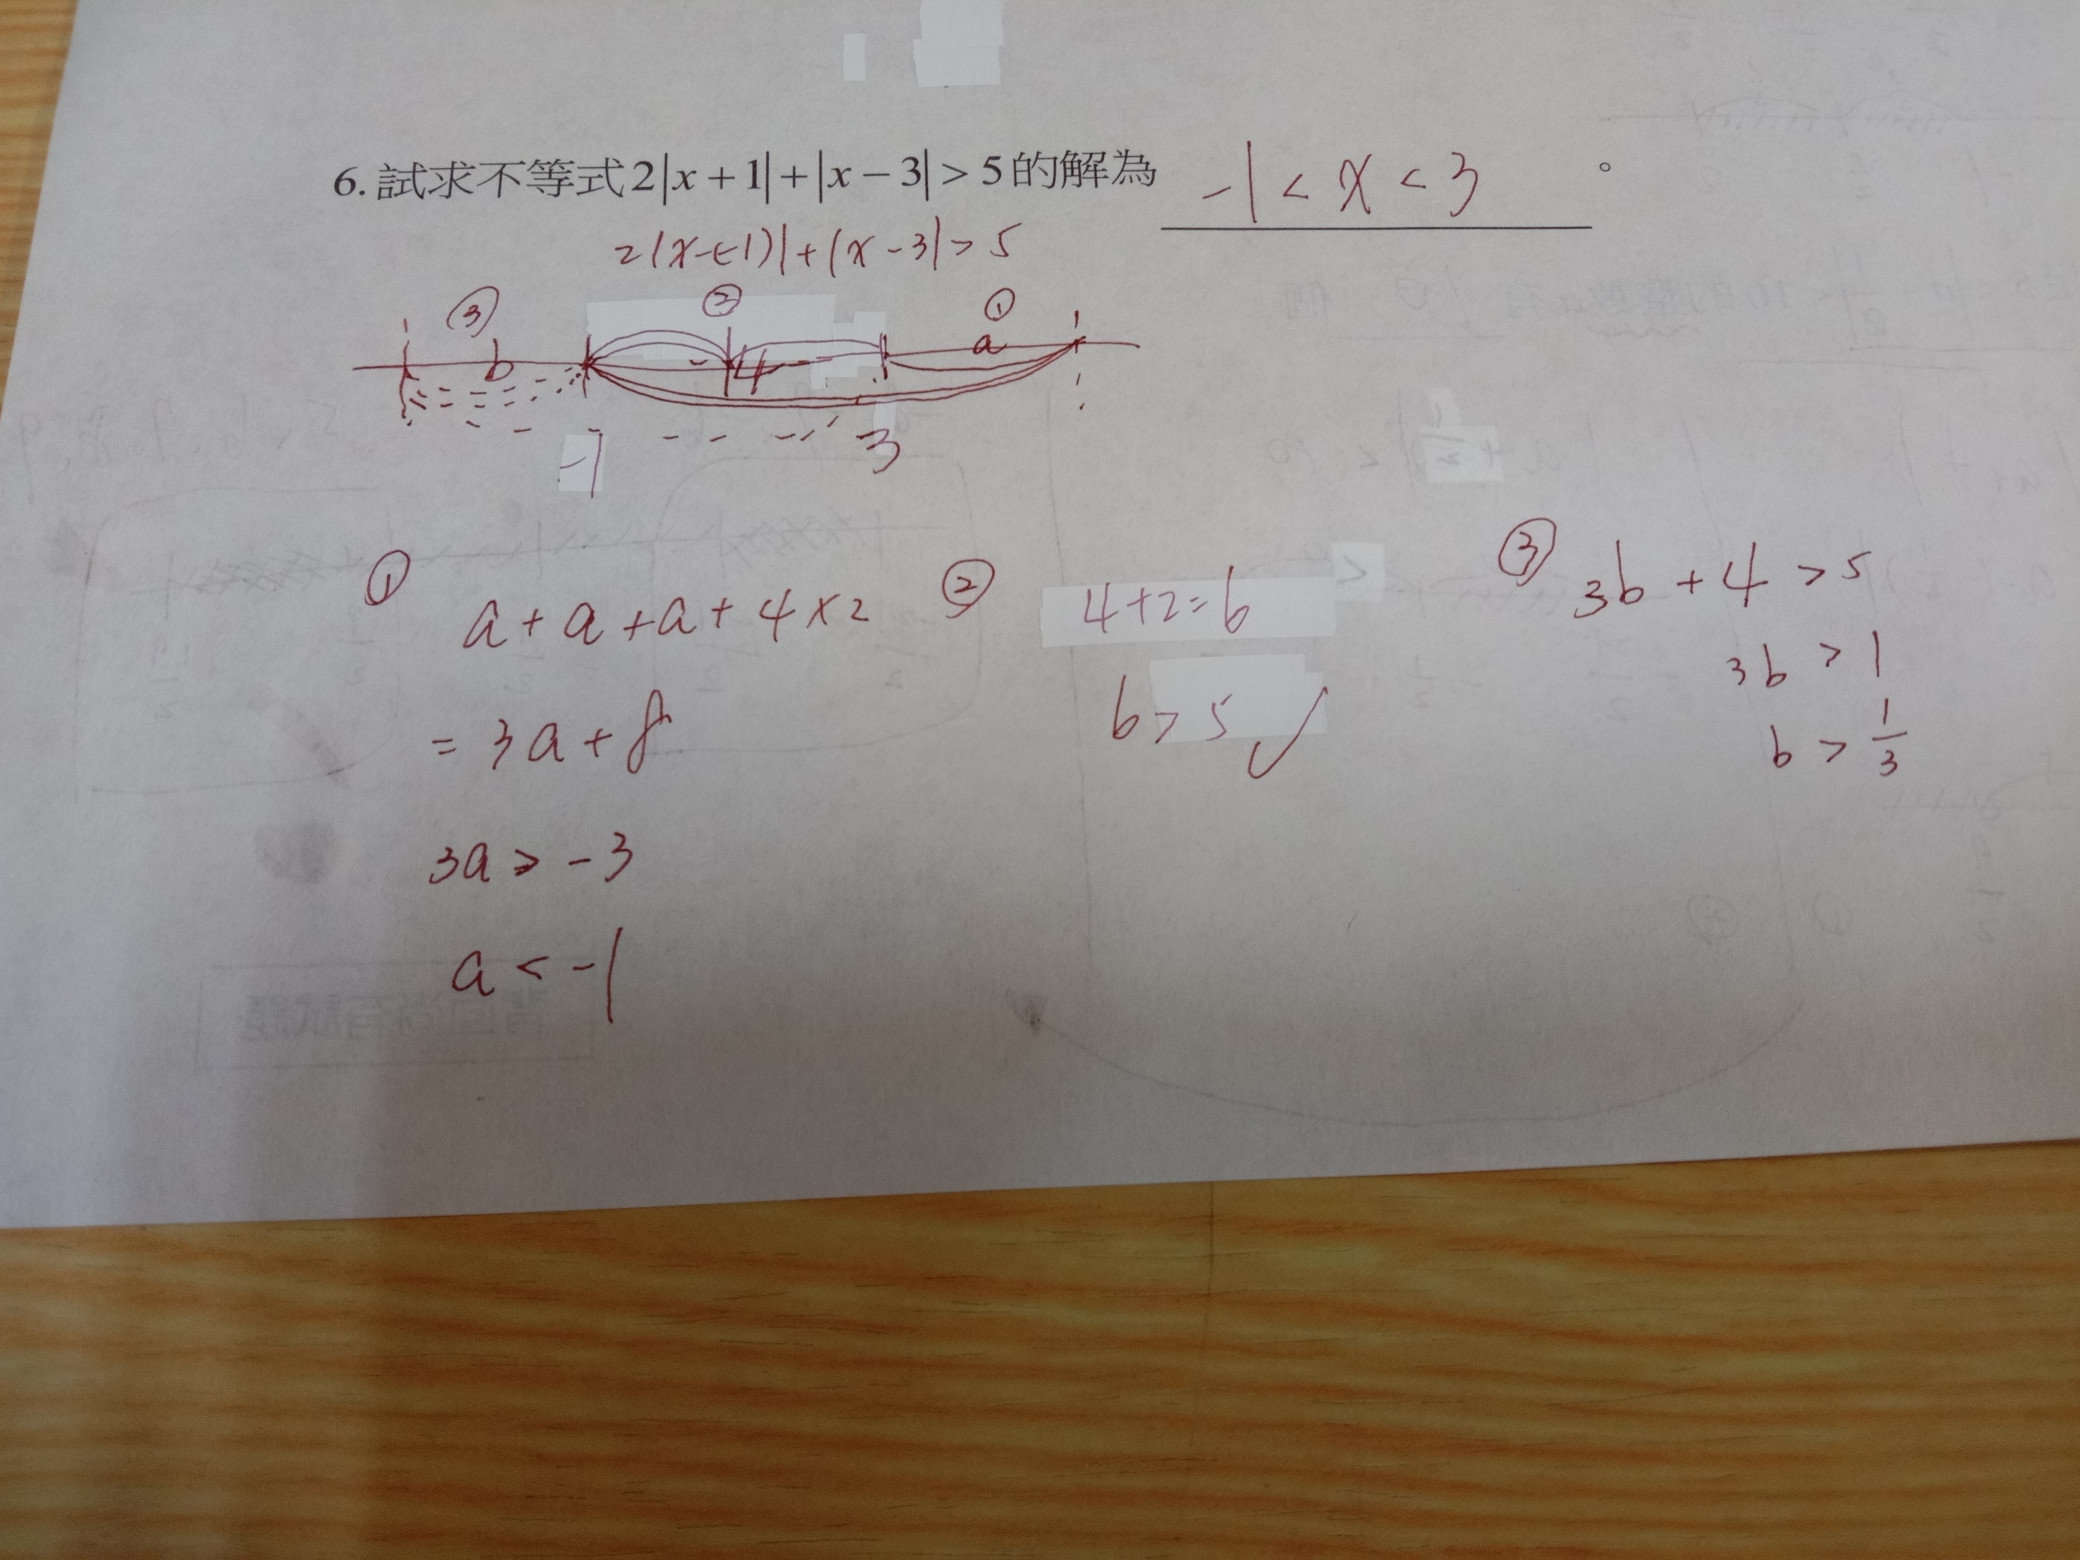 6. 試求不等式2|x+1|+|x−3|>5的解為 -1<x<3 。
2|x-(-1)|+|x-3|>5
③ ② ①
b 4 a
-1 3
① a+a+a+4×2
=3a+8
3a>-3
a<-1
② 4+2=6
6>5 ✓
③ 3b+4>5
3b>1
b>1/3